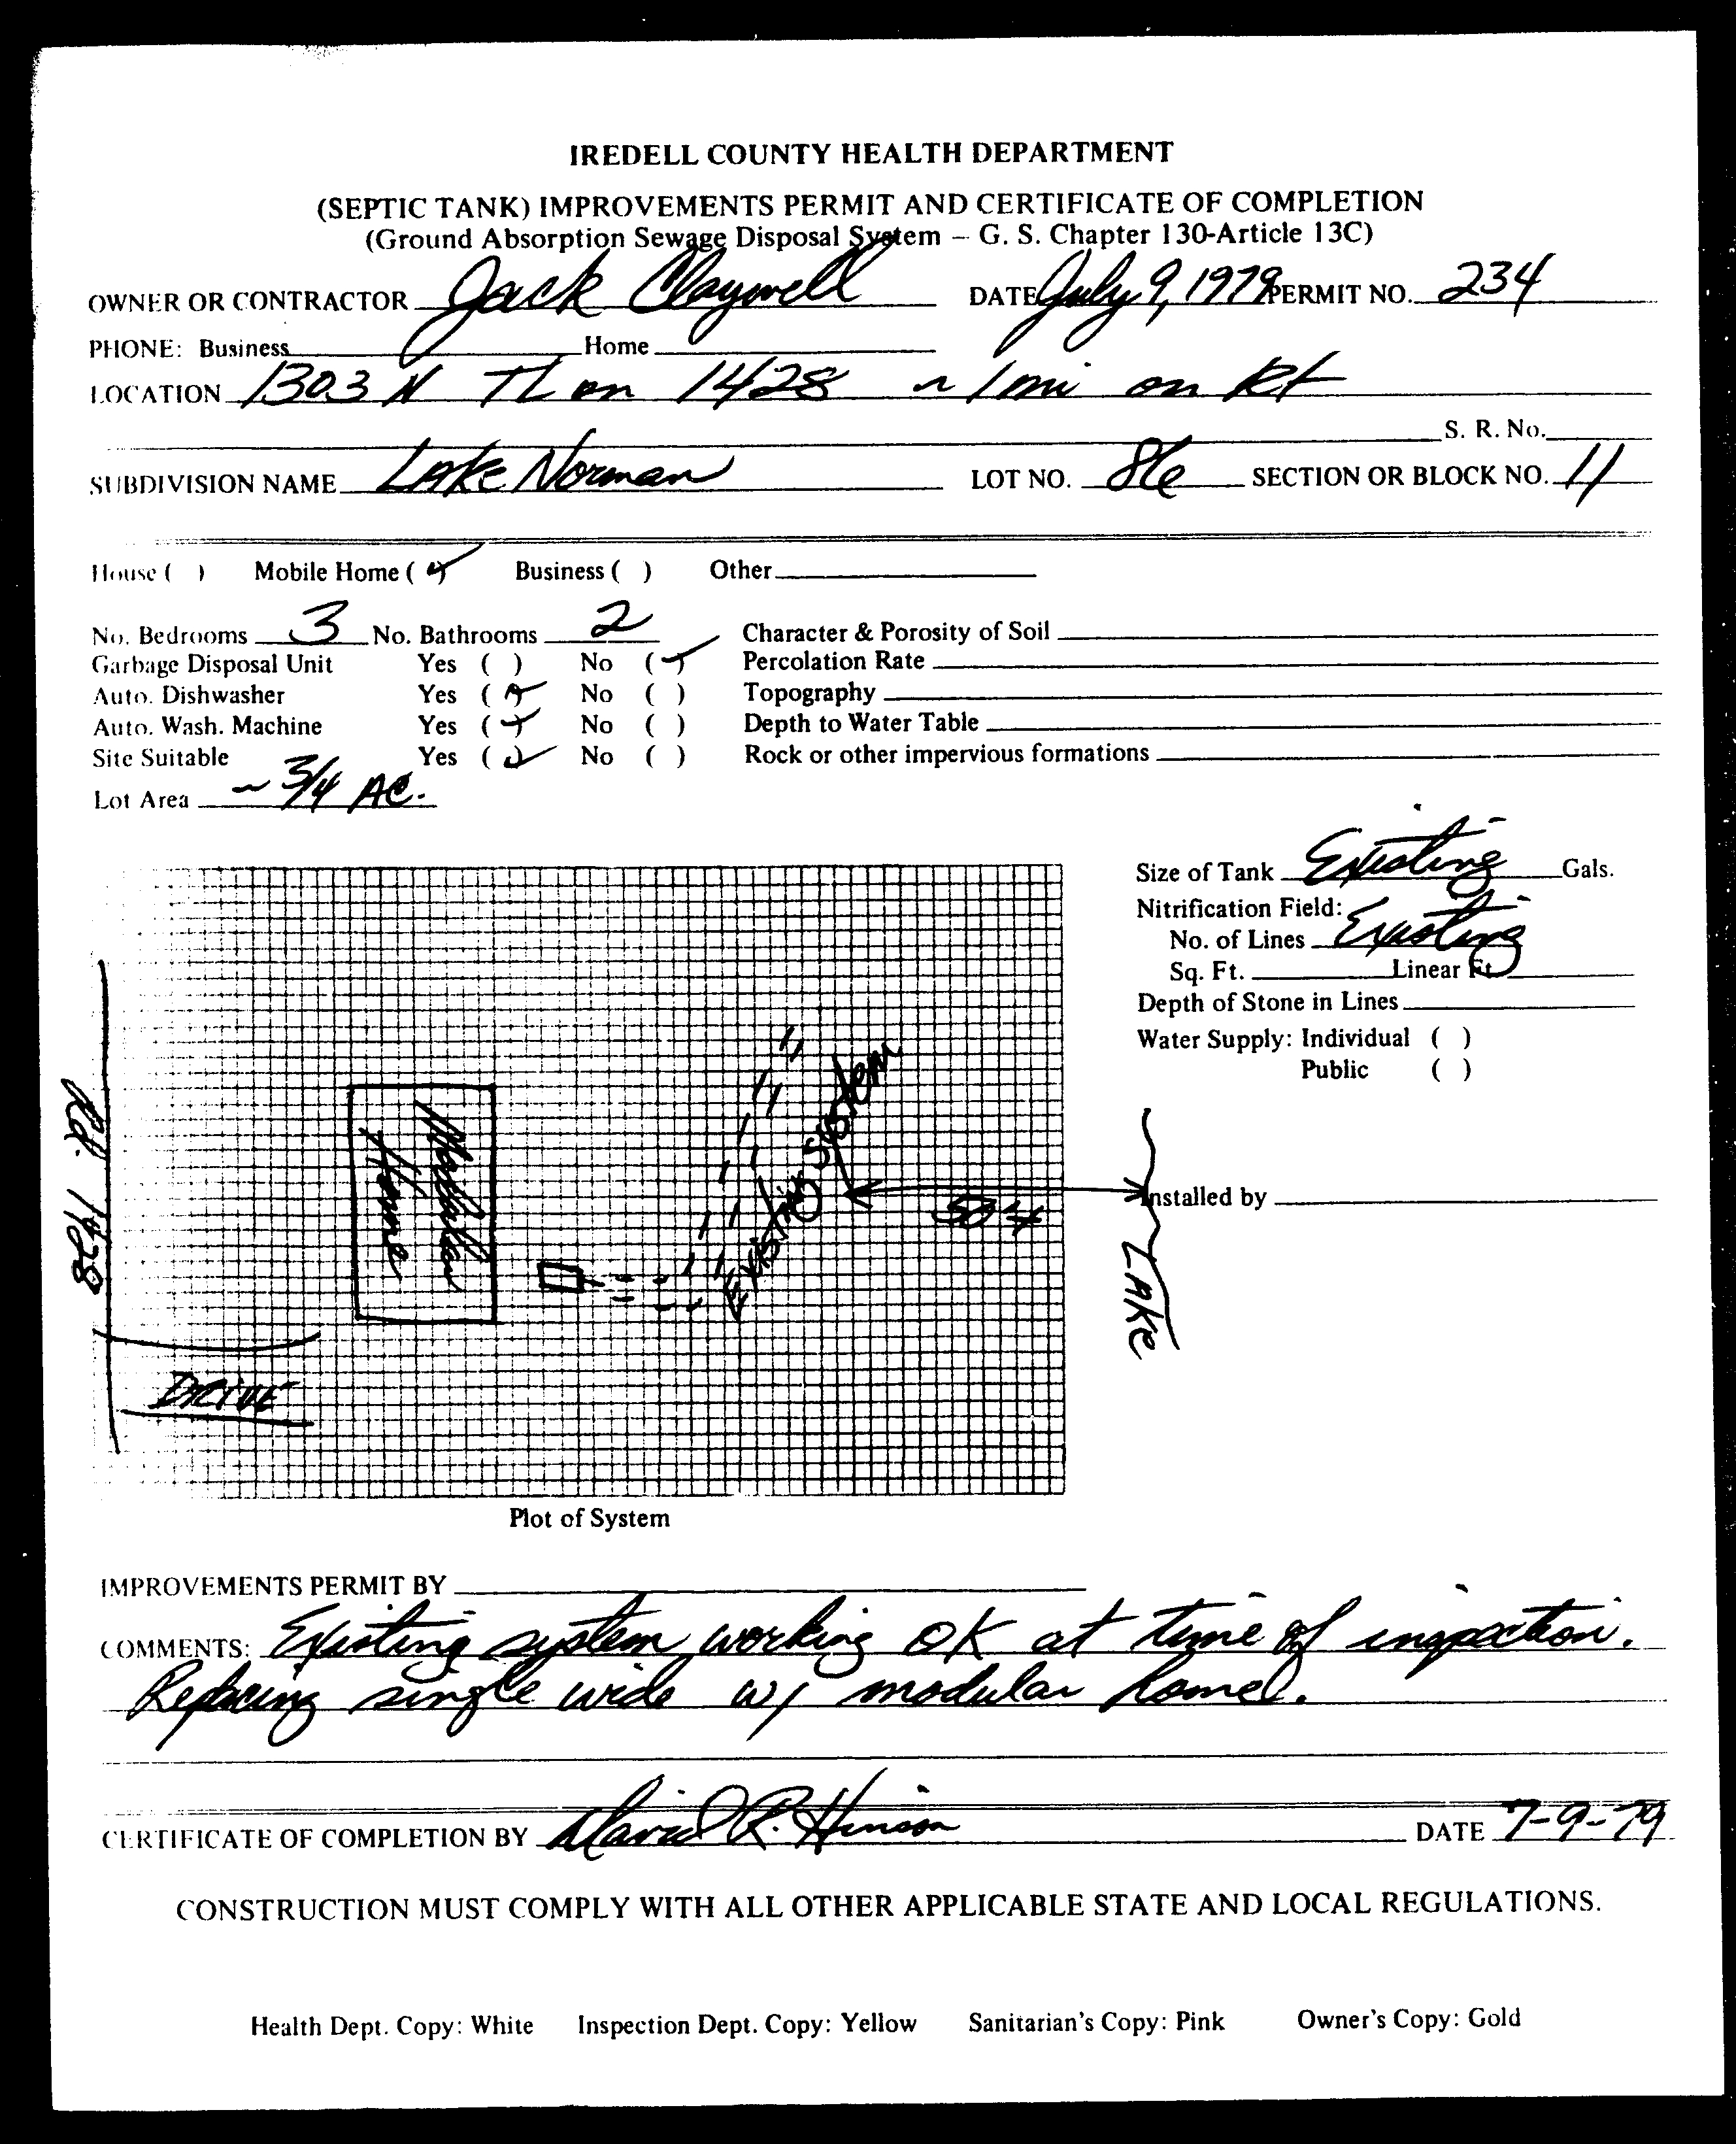 IREDELL COUNTY HEALTH DEPARTMENT
(SEPTIC TANK) IMPROVEMENTS PERMIT AND CERTIFICATE OF COMPLETION
(Ground Absorption Sewage Disposal System – G. S. Chapter 130-Article 13C)
OWNER OR CONTRACTOR Jack Claywell DATE July 9, 1979 PERMIT NO. 234
PHONE: Business Home
LOCATION 1303 N TL on 1428 ~ 1 mi on Rt
S. R. No.
SUBDIVISION NAME Lake Norman LOT NO. 86 SECTION OR BLOCK NO. 11
House ( ) Mobile Home (✓) Business ( ) Other
No. Bedrooms 3 No. Bathrooms 2 Character & Porosity of Soil
Garbage Disposal Unit Yes ( ) No (✓) Percolation Rate
Auto. Dishwasher Yes (✓) No ( ) Topography
Auto. Wash. Machine Yes (✓) No ( ) Depth to Water Table
Site Suitable Yes (✓) No ( ) Rock or other impervious formations
Lot Area ~ 3/4 AC.
Size of Tank Existing Gals.
Nitrification Field:
No. of Lines Existing
Sq. Ft. Linear Ft.
Depth of Stone in Lines
Water Supply: Individual ( )
Public ( )
Installed by
Rd. 1428
Modular
Home
Existing System
50
LAKE
DRIVE
Plot of System
IMPROVEMENTS PERMIT BY
COMMENTS: Existing system working OK at time of inspection.
Replacing single wide w/ modular home.
CERTIFICATE OF COMPLETION BY David R. Hinson DATE 7-9-79
CONSTRUCTION MUST COMPLY WITH ALL OTHER APPLICABLE STATE AND LOCAL REGULATIONS.
Health Dept. Copy: White Inspection Dept. Copy: Yellow Sanitarian's Copy: Pink Owner's Copy: Gold